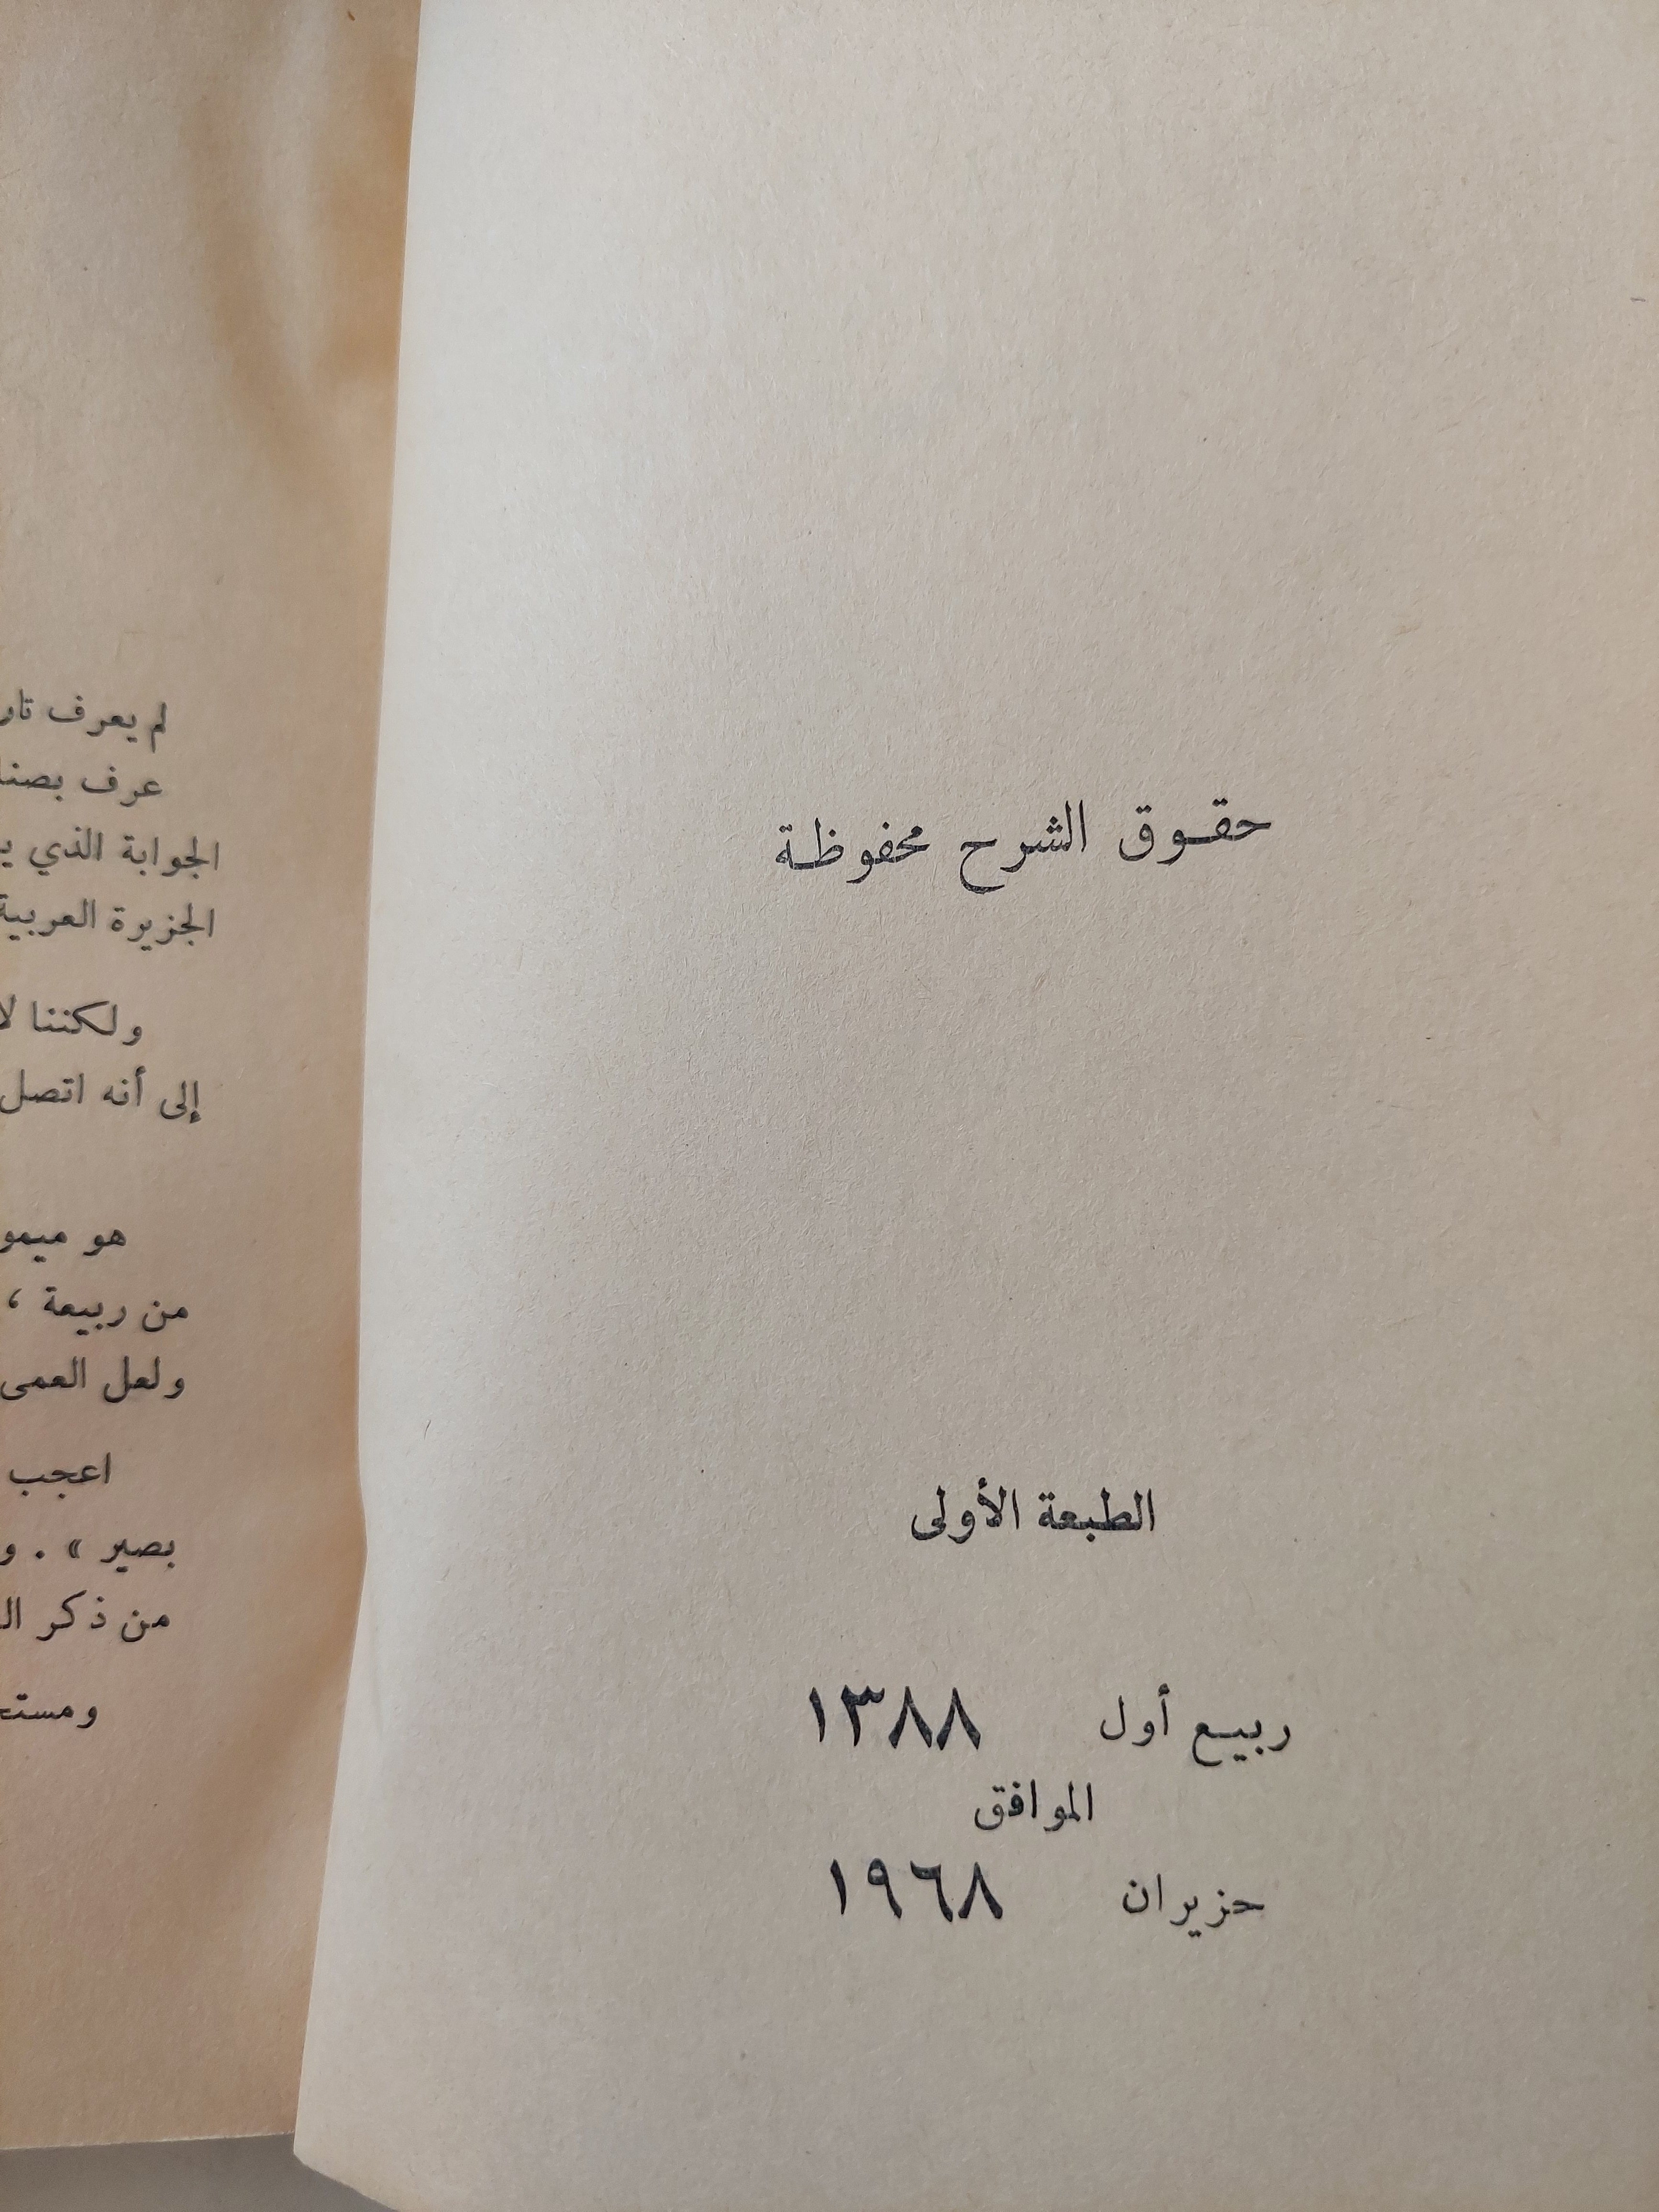 حقوق الشرح محفوظة
الطبعة الأولى
ربيع أول ١٣٨٨
الموافق
حزيران ١٩٦٨
لم يعرف
عرف
الجوابة الذي
الجزيرة العربية
ولكننا
إلى أنه اتصل
هو
من ربيعة ،
ولعل العمى
اعجب
بصير » . و
من ذكر